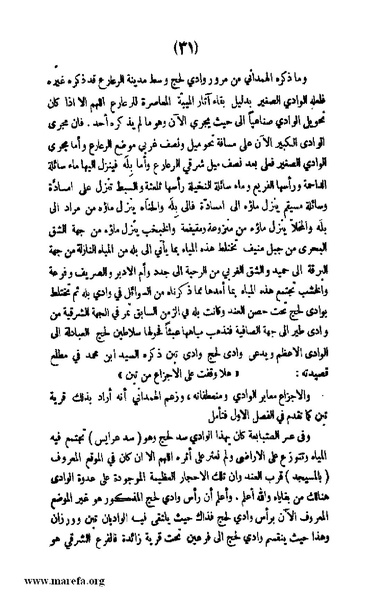 (٣١)
وما ذكره الهمداني من مرور وادي لحج وسط مدينة الرعارع قد ذكره غيره
فلعله الوادي الصغير بدليل بقاء آثار المبنية المعاصرة للرعارع اللهم الا اذا كان
تحويل الوادي صناعياً الى حيث يجري الآن وهو ما لم يذكره أحد . فان مجرى
الوادي الكبير الآن على مسافة نحو ميل ونصف غربي موضع الرعارع وأما مجرى
الوادي الصغير فعلى بعد نصف ميل شرقي الرعارع وأما بله فينزل اليها ماء سائلة
ورأسها الفريع وماء سائلة النخيلة رأسها والسبط تنزل على
وسائلة ينزل ماؤه الى بله والحناء ينزل ماؤه من مراد الى
بله ينزل ماؤه من ومقيفعة ينزل ماؤه من جهة الشق
البحرى من جبل منيف فتختلط هذه المياه بما يأتى الى بله من المياه النازلة من جهة
الى حميد والشق الغربي من الرحبة الى جدد وأم الادبر والصريف وفرعة
تجتمع هذه المياه بما أمدها مما ذكرناه من السوائل في وادي بله ثم تختلط
بوادي لحج تحت حصن العند وكانت بله في الزمن السابق تمر في الجهة الشرقية من
وادي طير الى جهة الصافية فتذهب مياهها عبثاً فحولها سلاطين لحج العبادلة الى
الوادى الاعظم ويدعى وادى لحج وادي تبن ذكره السيد ابن محمد في مطلع
قصيدته : « هلا وقفت على الاجزاع من تبن »
والاجزاع معابر الوادي ومنعطفاته ، وزعم الهمدانى أنه أراد بذلك قرية
تبن كما تقدم في الفصل الاول فتأمل
وفى كان بهذا الوادي سد لحج وهو ( سد عرايس ) تجتمع فيه
المياه وتتوزع على الاراضى ولم نعثر على أثره اللهم الا ان كان في الموقع المعروف
( بالمسيجد ) قرب العند وان تلك الاحجار العظيمة الموجودة على عدوة الوادى
هنالك من بقاياه والله أعلم . وأعلم أن رأس وادي لحج المذكور هو غير الموضع
المعروف الآن برأس وادي لحج فذاك حيث يلتقى فيه الواديان تبن وورزان
وهذا حيث ينقسم وادي لحج الى فرعين تحت قرية زائدة فالفرع الشرقي هو
www.marefa.org